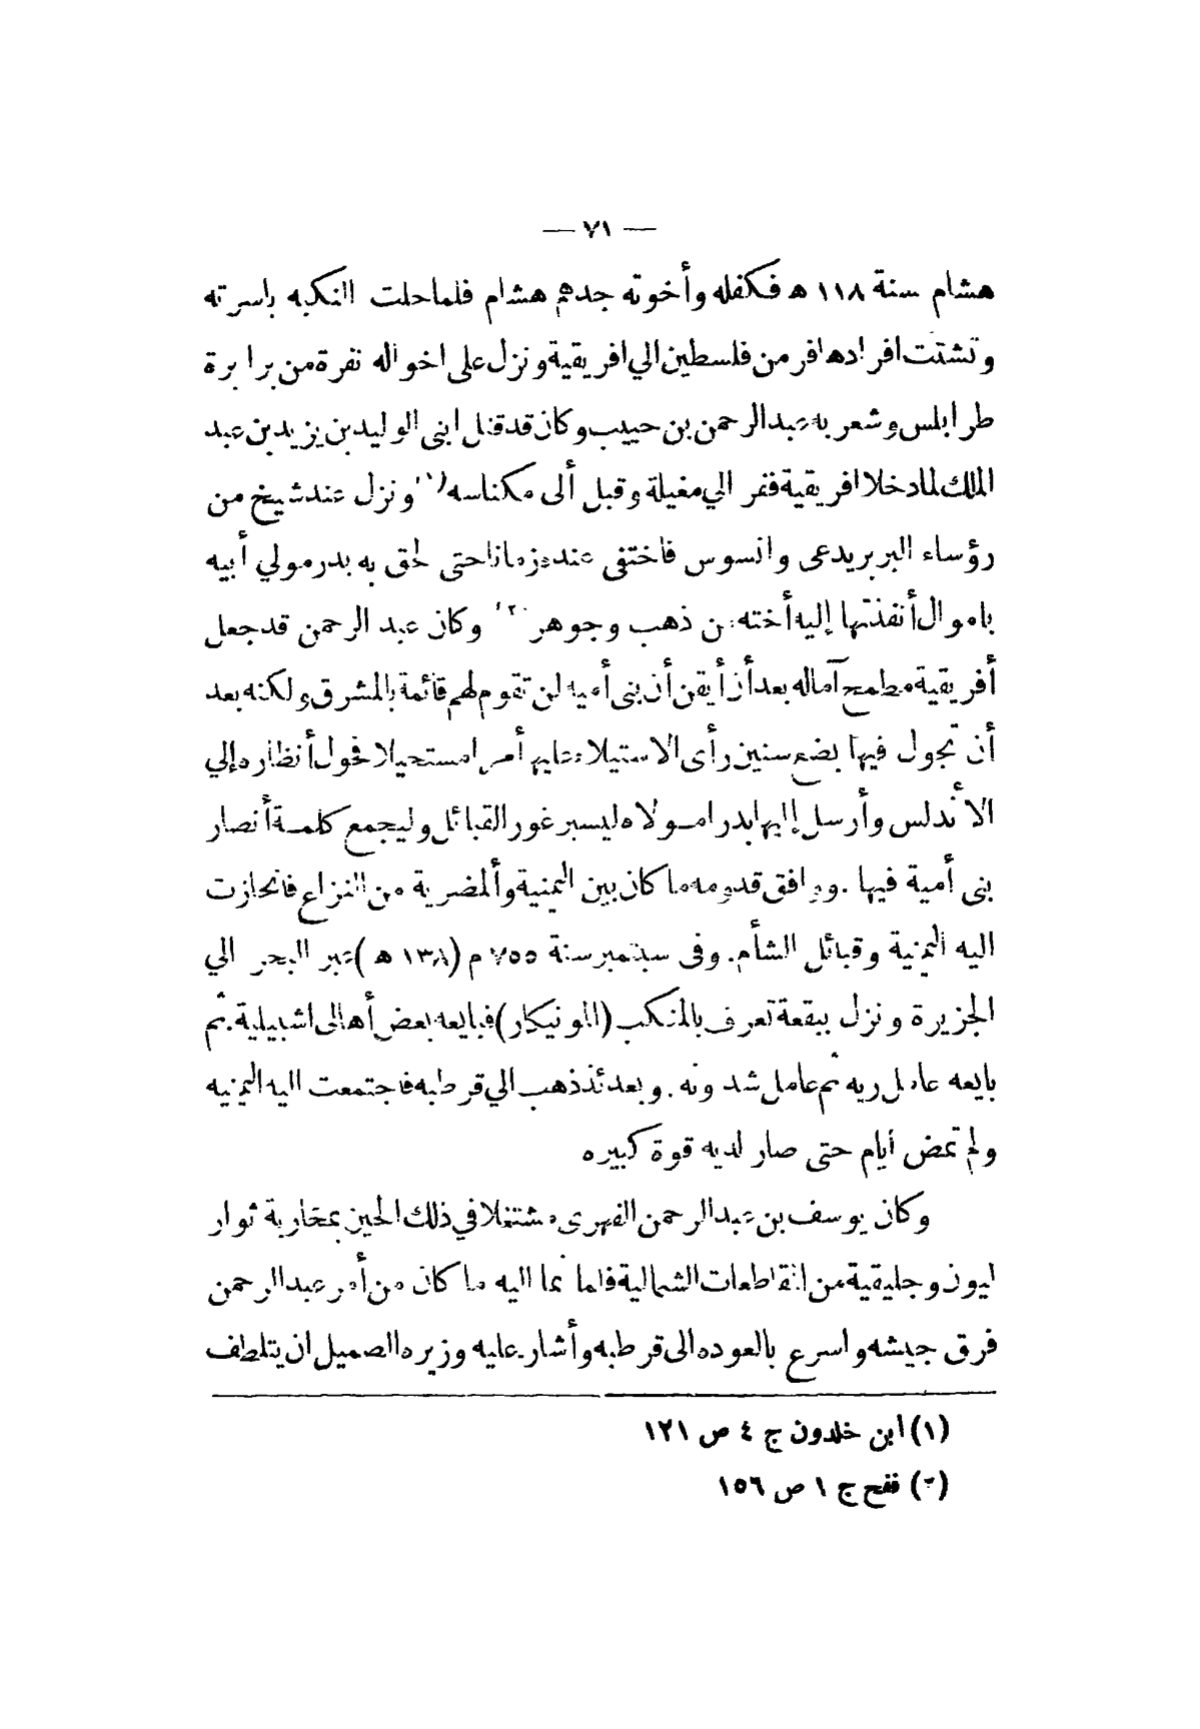 — ٧١ —
هشام سنة ١١٨ ه فكفله وأخوته جدهم هشام فلما حلت النكبه باسرته
وتشتت افرادها فر من فلسطين الي افريقية ونزل على اخواله نفرة من برابرة
طرابلس وشعر به عبد الرحمن بن حبيب وكان قد قتل ابنى الوليد بن يزيد بن عبد
الملك لما دخلا افريقية ففر الي مغيلة وقيل ألى مكناسه (١) ونزل عند شيخ من
رؤساء البربر يدعى وانسوس فاختفى عنده زمانا حتى لحق به بدر مولي أبيه
باموال أنفذتها إليه أخته من ذهب وجوهر (٢) وكان عبد الرحمن قد جعل
أفريقية مطمح آماله بعد أن أيقن أن بنى أمية لن تقوم لهم قائمة بالمشرق ولكنه بعد
أن تجول فيها بضع سنين رأى الاستيلاء عليها أمرا مستحيلا فحول أنظاره إلي
الأندلس وأرسل إليها بدرا مولاه ليسبر غور القبائل وليجمع كلمة أنصار
بنى أمية فيها . ووافق قدومه ما كان بين اليمنية وألمضرية من النزاع فانحازت
اليه اليمنية وقبائل الشأم. وفى سبتمبر سنة ٧٥٥ م (١٣٨ ه) عبر البحر الي
الجزيرة ونزل ببقعة تعرف بالمنكب (المونيكار) فبايعه بعض أهالى اشبيلية. ثم
بايعه عامل ريه ثم عامل شدونه . وبعدئذ ذهب الي قرطبه فاجتمعت اليه اليمنيه
ولم تمض أيام حتى صار لديه قوة كبيره
وكان يوسف بن عبد الرحمن الفهرى مشتغلا في ذلك الحين بمحاربة ثوار
ليون وجليقية من المقاطعات الشمالية فلما نما اليه ما كان من أمر عبد الرحمن
فرق جيشه واسرع بالعوده الى قرطبه وأشار عليه وزيره الصميل ان يتلطف
(١) ابن خلدون ج ٤ ص ١٢١
(٢) نفح ج ١ ص ١٥٦